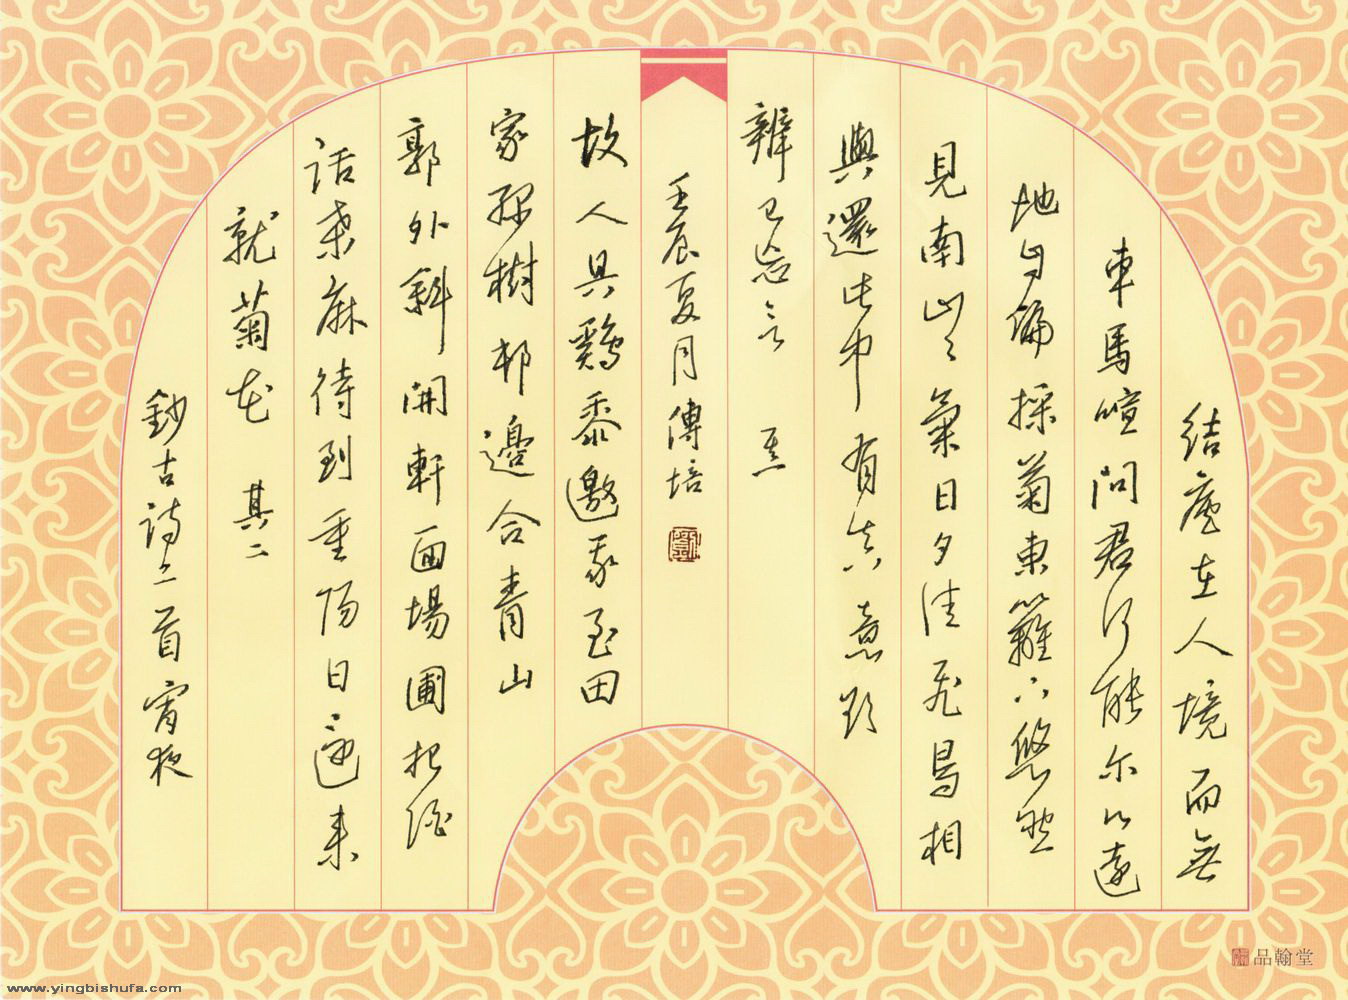 結廬在人境而無
車馬喧問君何能尔心遠
地自偏採菊東籬下悠然
見南山々氣日夕佳飛鳥相
與還此中有真意欲
辨已忘言 其一
壬辰夏月傳培
故人具鷄黍邀我至田
家綠樹邨邊合青山
郭外斜開軒面場圃把酒
話桑麻待到重陽日還來
就菊花 其二
鈔古詩二首宵夜
品翰堂
www.yingbishufa.com